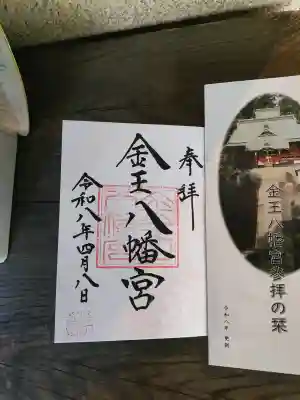 奉拝
金王八幡宮
令和八年四月八日
金王八幡宮参拝の栞